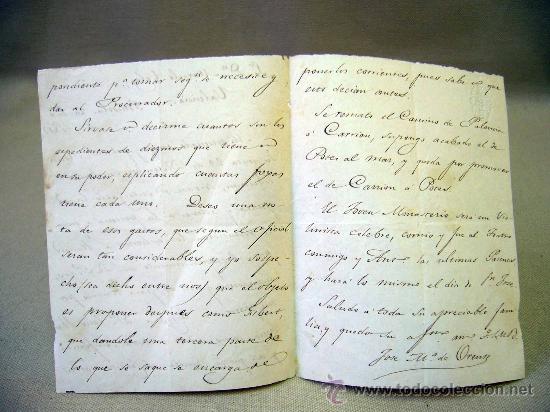 pondiente pª tomar lo qᵉ se necesite y
dar al Procurador.
Sirvase V. decirme cuantos son los
espedientes de diezmos que tiene V.
en su poder, esplicando cuantas fojas
tiene cada uno. Deseo una no-
ta de esos gastos, que segun el oficial
seran tan considerables, y yo sospe-
cho (sea dicho entre nos) que el objeto
es proponer despues como Gibert,
que dandole una tercera parte de
lo que se saque se encarga de
ponerlos corrientes, pues sabe V. que
esto decian antes.
Se remató el Camino de Palencia
á Carrion, supongo acabado el de
al mar, y queda por
el de Carrion á
El Joven Monasterio sera un Vio-
linista célebre, comió y fue al
conmigo y las ultimas Pascuas
y hará lo mismo el dia de Sⁿ José.
Saludo á toda su apreciable fami-
lia, y quedo su afmo
José Mª de Orense
todocoleccion